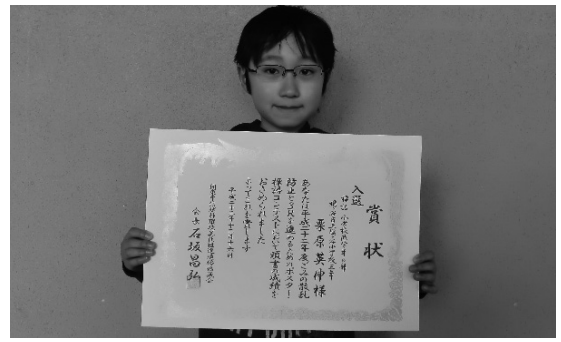 賞状
入選
栗原英伸様
あなたは平成二十二年度ごみの散乱
防止と3Rを進めるためのポスター
標語コンテストにおいて頭書の成績を
おさめられました
よってこれを賞します
会長 石坂昌弘